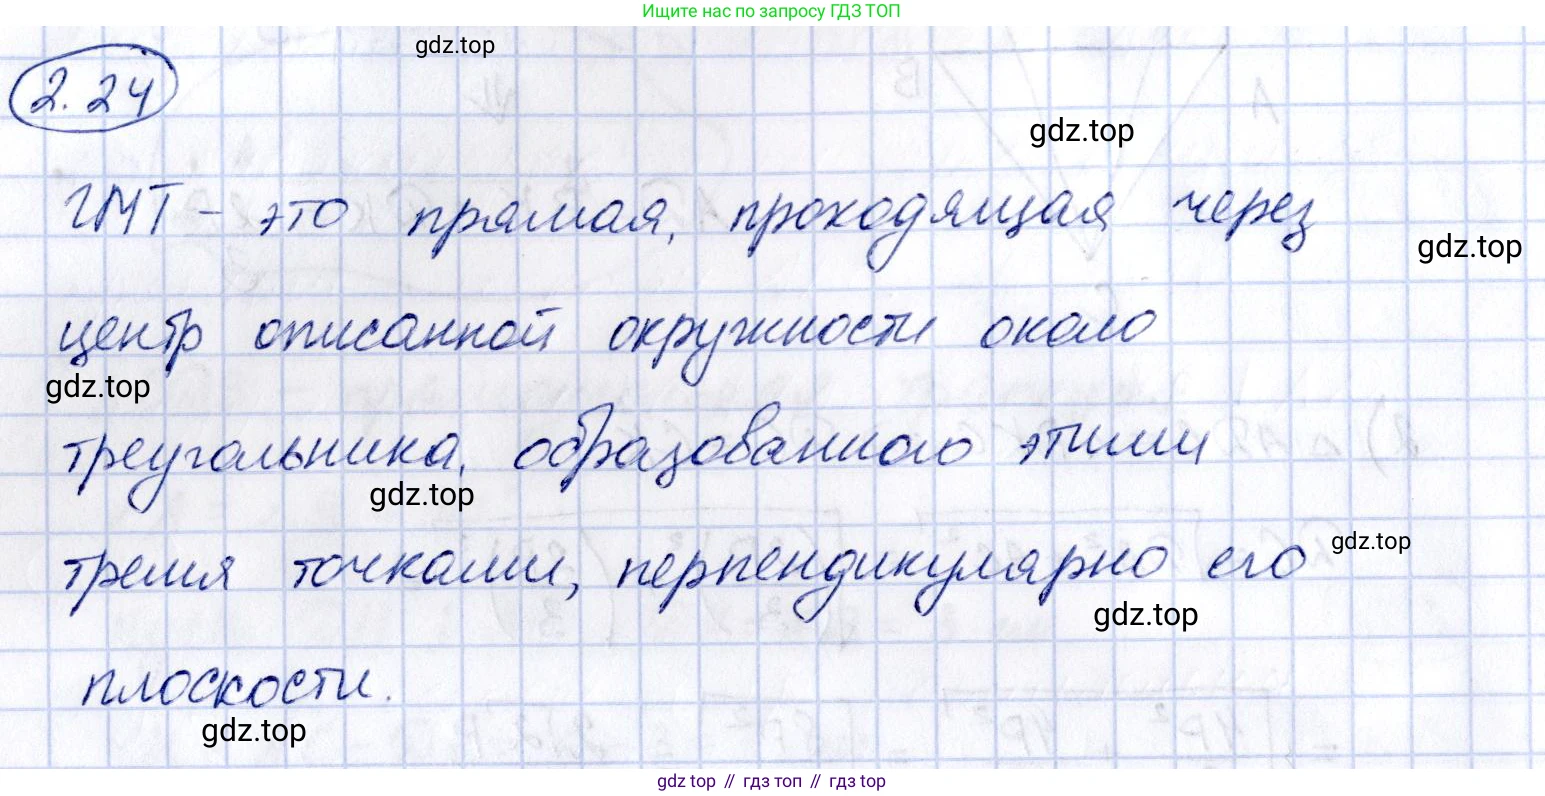 Ищите нас по запросу ГДЗ ТОП
gdz.top
2.24
gdz.top
ГМТ - это прямая, проходящая через
gdz.top
центр описанной окружности около
gdz.top
треугольника, образованного этими
gdz.top
тремя точками, перпендикулярно его
gdz.top
gdz.top
плоскости.
gdz.top
gdz top // гдз топ // гдз top